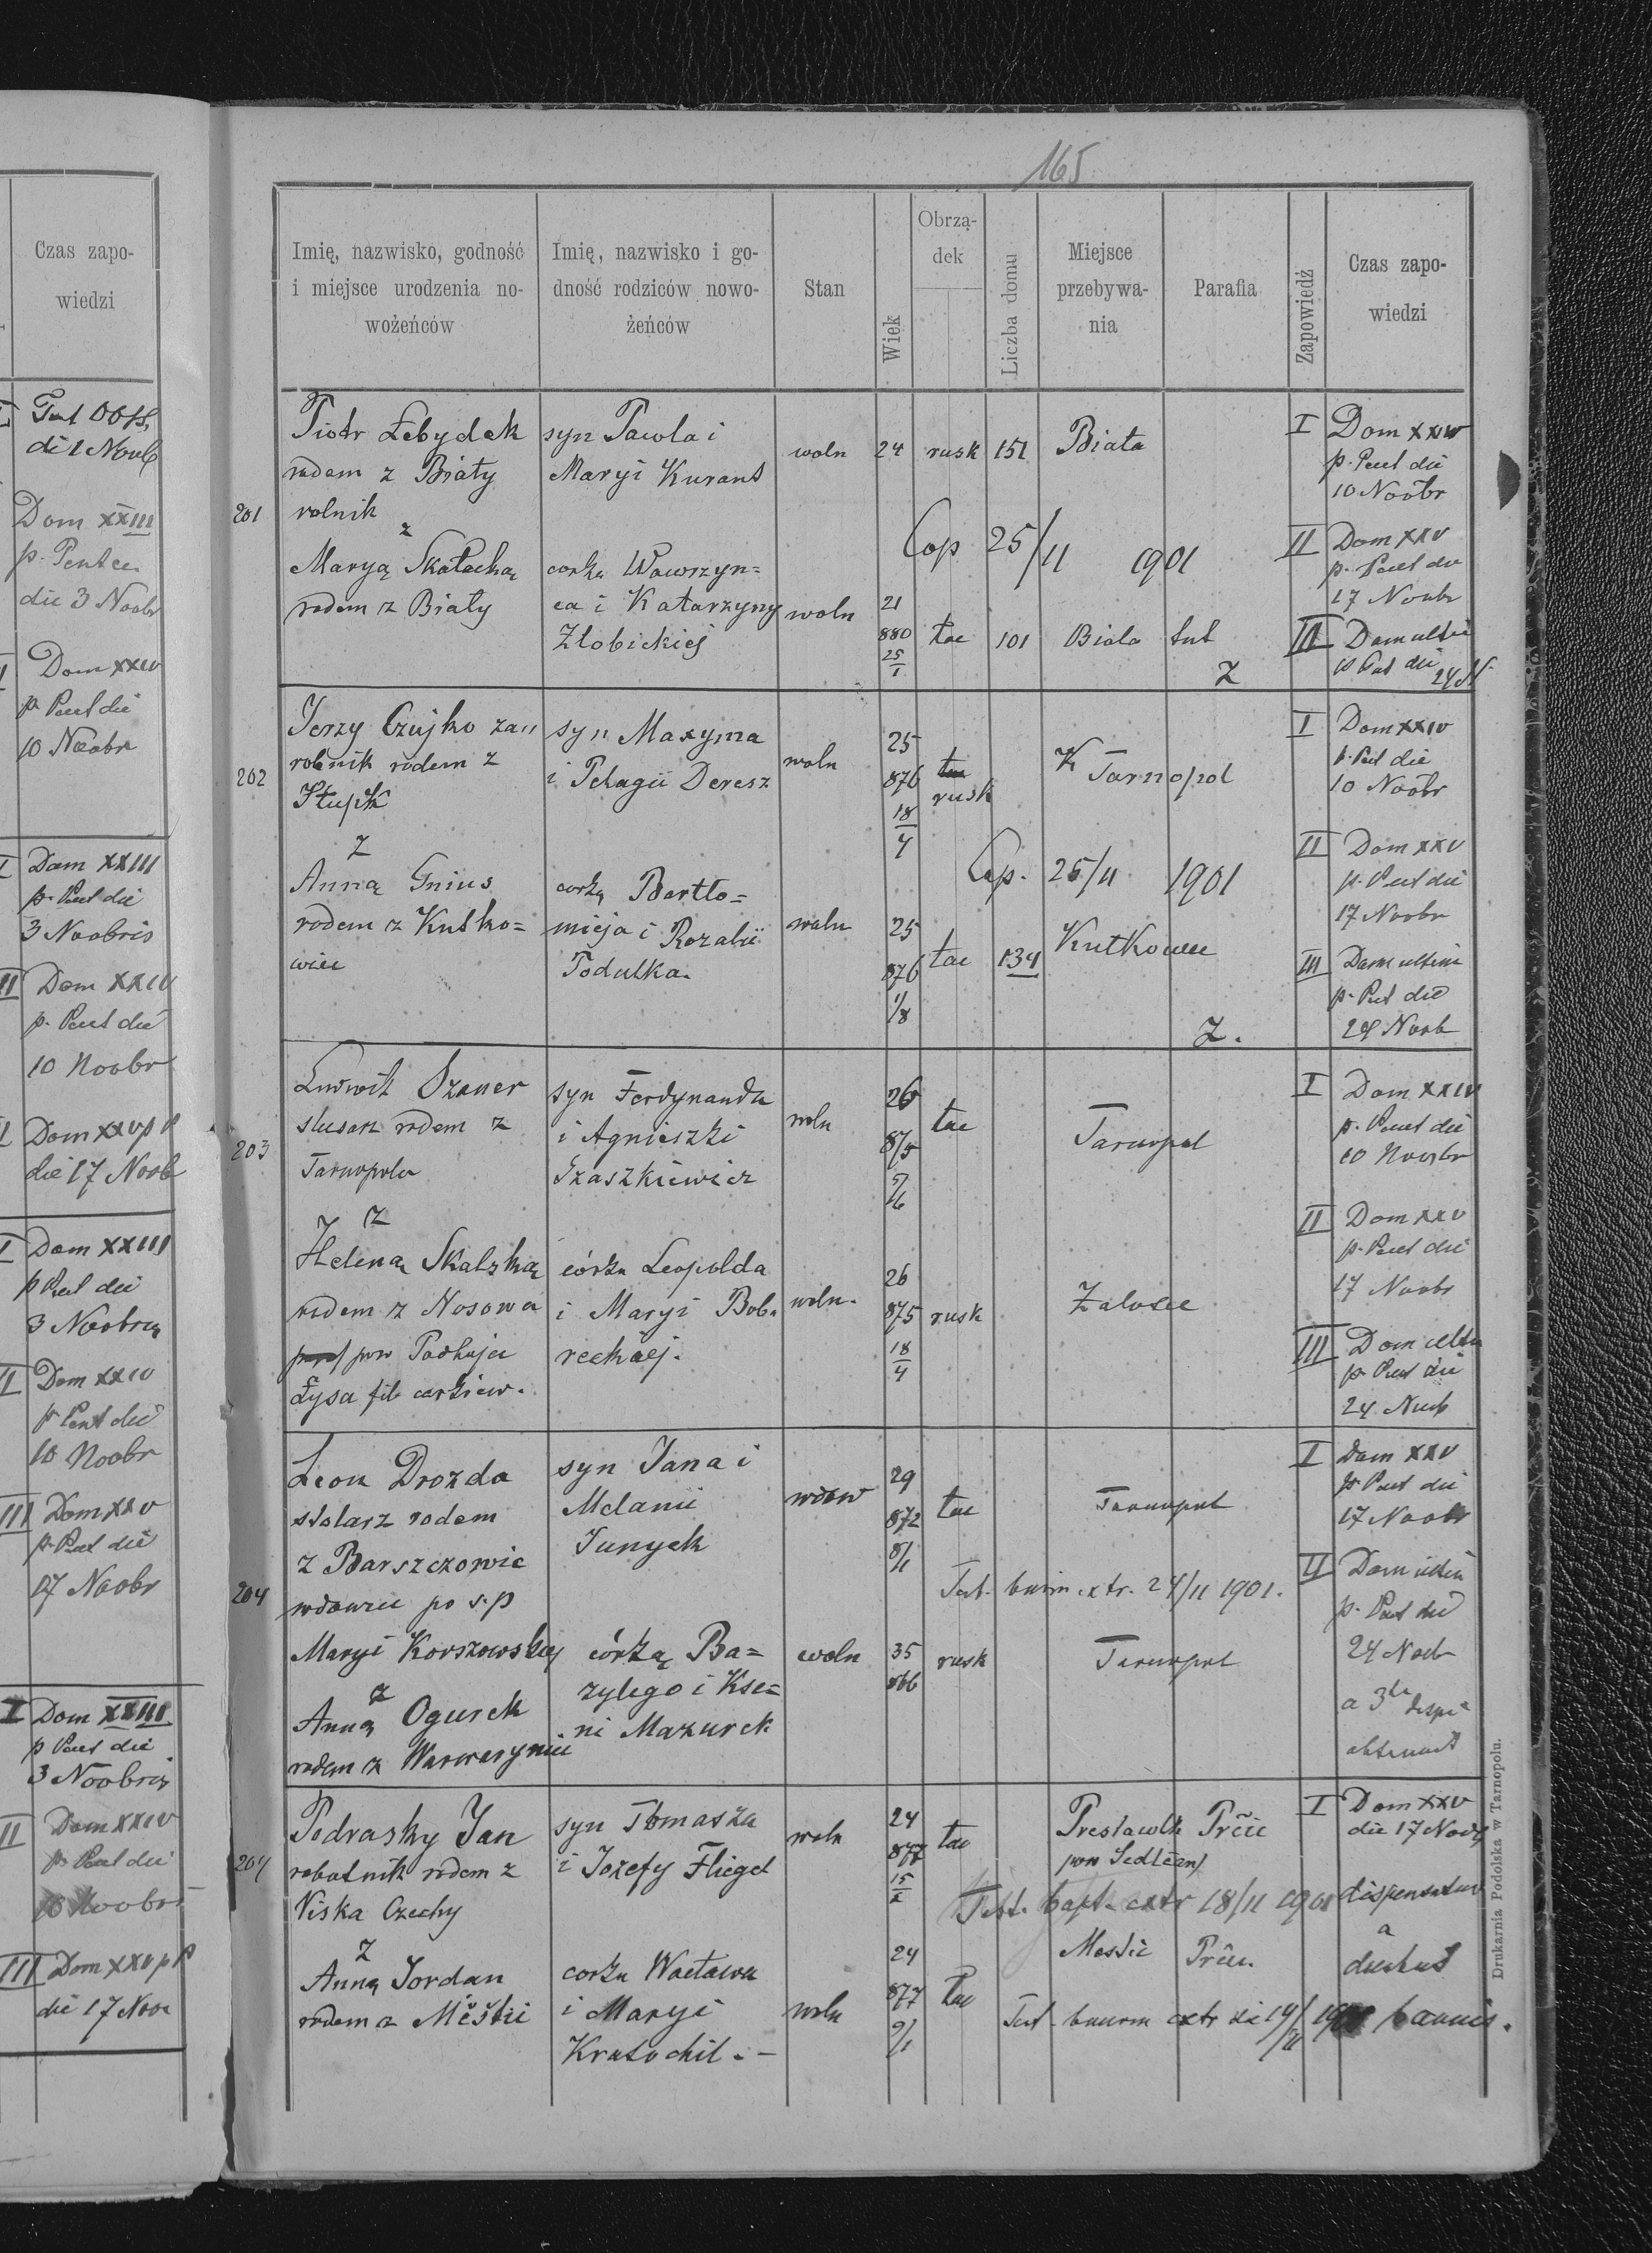 Czas zapo-
wiedzi
di 1 Novb
Dom XXIII
p. Pentec
die 3 Noobr
Dom XXIV
p. Pent die
10 Noobr
I Dom XXIII
p. Pent die
3 Noobris
II Dom XXIV
p. Pent die
10 Noobr
Dom XXV p P
die 17 Noob
I Dom XXIII
p Pent die
3 Noobris
II Dom XXIV
p Pent die
10 Noobr
III Dom XXV
p. Pent die
17 Noobr
I Dom XXIII
p Pent die
3 Noobris
II Dom XXIV
p. Pent die
10 Noobr
III Dom XXV p P
die 17 Noov
165
Imię, nazwisko, godność
i miejsce urodzenia no-
wożeńców
Imię, nazwisko i go-
dność rodziców nowo-
żeńców
Stan
Wiek
Obrzą-
dek
Liczba domu
Miejsce
przebywa-
nia
Parafia
Zapowiedź
Czas zapo-
wiedzi
201
Piotr Łebydek
rodem z Biały
rolnik
z
Maryą Skałecką
rodem z Biały
syn Pawła i
Maryi Kurant
corka Wawrzyn=
ca i Katarzyny
Złobickiej
woln
woln
24
21
880
25/1
rusk
łac
151
101
Biała
Cop 25/11 1901
Biała tut
Z
I Dom XXIV
p. Pent die
10 Noobr
II Dom XXV
p. Pent die
17 Noobr
III Dom ultim
p Pent die 24 N
202
Jerzy Czujko za
robnik rodem z
Słupk
z
Anną Gnius
rodem z Kutko=
wiec
syn Maxyma
i Pelagii Deresz
corką Bartło=
mieja i Rozalii
Podulka.
woln
woln
25
876
18/4
25
876
1/8
rusk
łac
134
Tarnopol
Cop. 25/11 1901
Kutkowce
Z.
I Dom XXIV
p. Pent die
10 Noobr
II Dom XXV
p. Pent die
17 Noobr
III Dom ultim
p. Pent die
24 Noob
203
Ludwik Szauer
slusarz rodem z
Tarnopola
z
Heleną Skalską
rodem z Nosowa
pow Podhajce
syn Ferdynanda
i Agnieszki
Szaszkiewicz
córka Leopolda
i Maryi Bob-
reckiej.
woln
woln.
26
875
5/6
26
875
18/4
łac
rusk
Tarnopol
Zalosce
I Dom XXIV
p. Pent die
10 Noobr
II Dom XXV
p. Pent die
17 Noobr
III Dom ultim
p. Pent die
24 Noob
204
Leon Drozda
stolarz rodem
z Barszczowic
wdowiec po s.p
Maryi Korszowskiej
z
Anną Ogurek
rodem z Warwaryniec
syn Jana i
Melanii
Junyck
córką Ba=
zylego i Kse=
ni Mazurek
wdow
woln
29
872
8/1
35
866
łac
rusk
Tarnopol
Test. bann. extr. 24/11 1901.
Tarnopol
I Dom XXV
p Pent die
17 Noobr
II Dom ultim
p. Pent die
24 Noobr
a 3tia dispe
obtenta
204
Podrasky Jan
robotnik rodem z
Niska Czechy
z
Anną Jordan
rodem z Měštic
syn Tomasza
i Jozefy Fliegel
corka Wacława
i Maryi
Kratochil. -
woln
woln
24
877
15/2
24
877
9/1
łac
łac
Prestawlk
pow Sedlčan
Test. bapt. extr 18/11 1901
Mestic
Test. bannor extr
I Dom XXV
die 17 Novb
dispensatur
a
duobus
bannis.
Drukarnia Podolska w Tarnopolu.